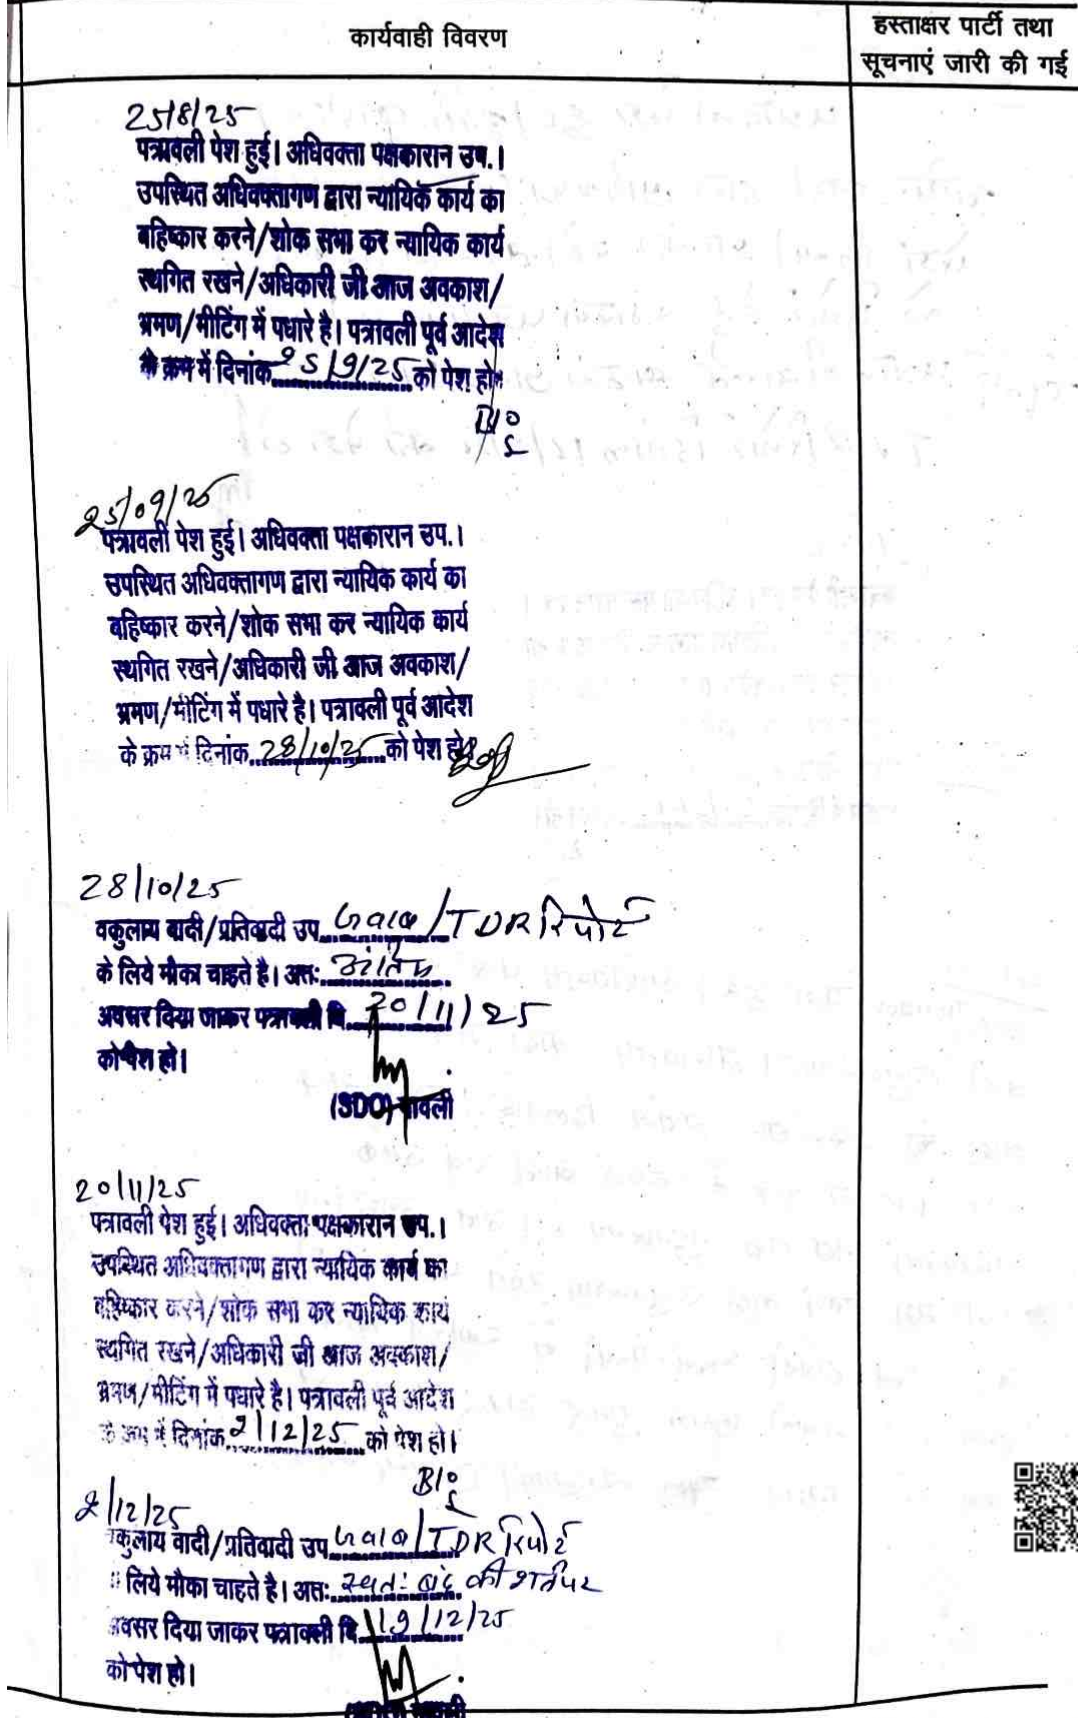 कार्यवाही विवरण
हस्ताक्षर पार्टी तथा
सूचनाएं जारी की गई
25/8/25
पत्रावली पेश हुई। अधिवक्ता पक्षकारान उप.।
उपस्थित अधिवक्तागण द्वारा न्यायिक कार्य का
बहिष्कार करने/शोक सभा कर न्यायिक कार्य
स्थगित रखने/अधिकारी जी आज अवकाश/
भ्रमण/मीटिंग में पधारे है। पत्रावली पूर्व आदेश
के क्रम में दिनांक 25/9/25 को पेश हो।
25/09/25
पत्रावली पेश हुई। अधिवक्ता पक्षकारान उप.।
उपस्थित अधिवक्तागण द्वारा न्यायिक कार्य का
बहिष्कार करने/शोक सभा कर न्यायिक कार्य
स्थगित रखने/अधिकारी जी आज अवकाश/
भ्रमण/मीटिंग में पधारे है। पत्रावली पूर्व आदेश
के क्रम में दिनांक 28/10/25 को पेश हो।
28/10/25
वकुलाय वादी/प्रतिवादी उप. जवाब/TDR रिपोर्ट
के लिये मौका चाहते है। अतः अंतिम
अवसर दिया जाकर पत्रावली दि. 20/11/25
को पेश हो।
(SDO) बावली
20/11/25
पत्रावली पेश हुई। अधिवक्ता पक्षकारान उप.।
उपस्थित अधिवक्तागण द्वारा न्यायिक कार्य का
बहिष्कार करने/शोक सभा कर न्यायिक कार्य
स्थगित रखने/अधिकारी जी आज अवकाश/
भ्रमण/मीटिंग में पधारे है। पत्रावली पूर्व आदेश
के क्रम में दिनांक 2/12/25 को पेश हो।
2/12/25
वकुलाय वादी/प्रतिवादी उप. जवाब/TDR रिपोर्ट
लिये मौका चाहते है। अतः स्वतः बंद की शर्त पर
अवसर दिया जाकर पत्रावली दि. 19/12/25
को पेश हो।